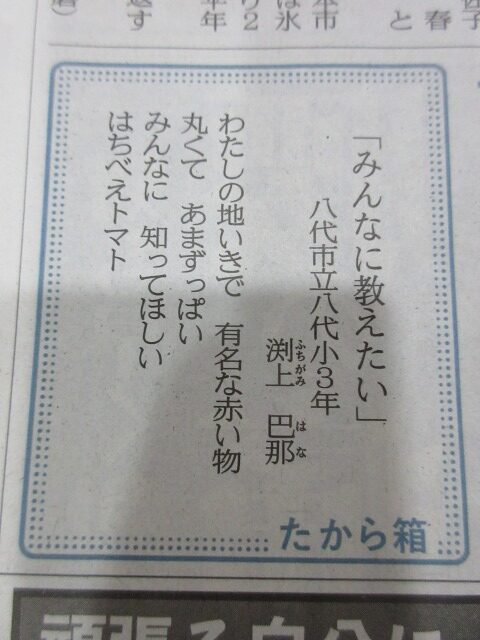 「みんなに教えたい」
八代市立八代小３年
渕上　巴那
ふちがみ　はな
わたしの地いきで　有名な赤い物
丸くて　あまずっぱい
みんなに　知ってほしい
はちべえトマト
たから箱